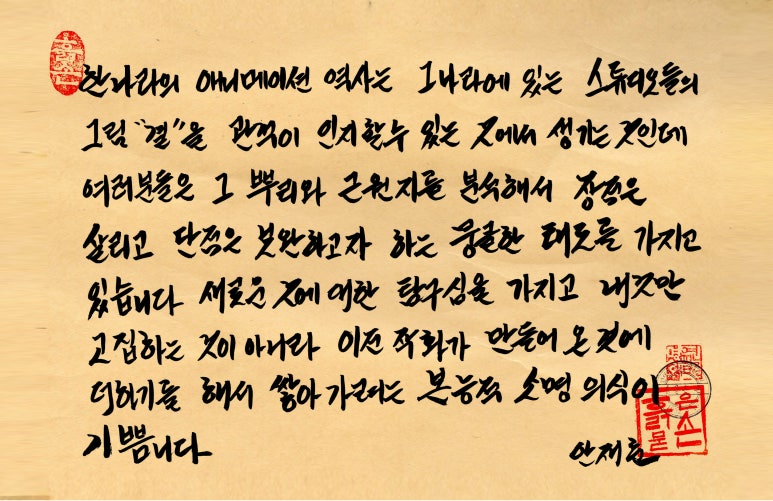 한나라의 애니메이션 역사는 그나라에 있는 스튜디오들의
그림 "결"을 관객이 인지할수 있는 것에서 생기는 것인데
여러분들은 그 뿌리와 근원지를 분석해서 장점은
살리고 단점은 보완하고자 하는 뭉클한 태도를 가지고
있습니다 새로운 것에 대한 탐구심을 가지고 내것만
고집하는 것이 아니라 이전 작화가 만들어 온 것에
더하기를 해서 쌓아 가려는 본능적 소명 의식이
기쁨니다
안재훈
흙
묻은
손